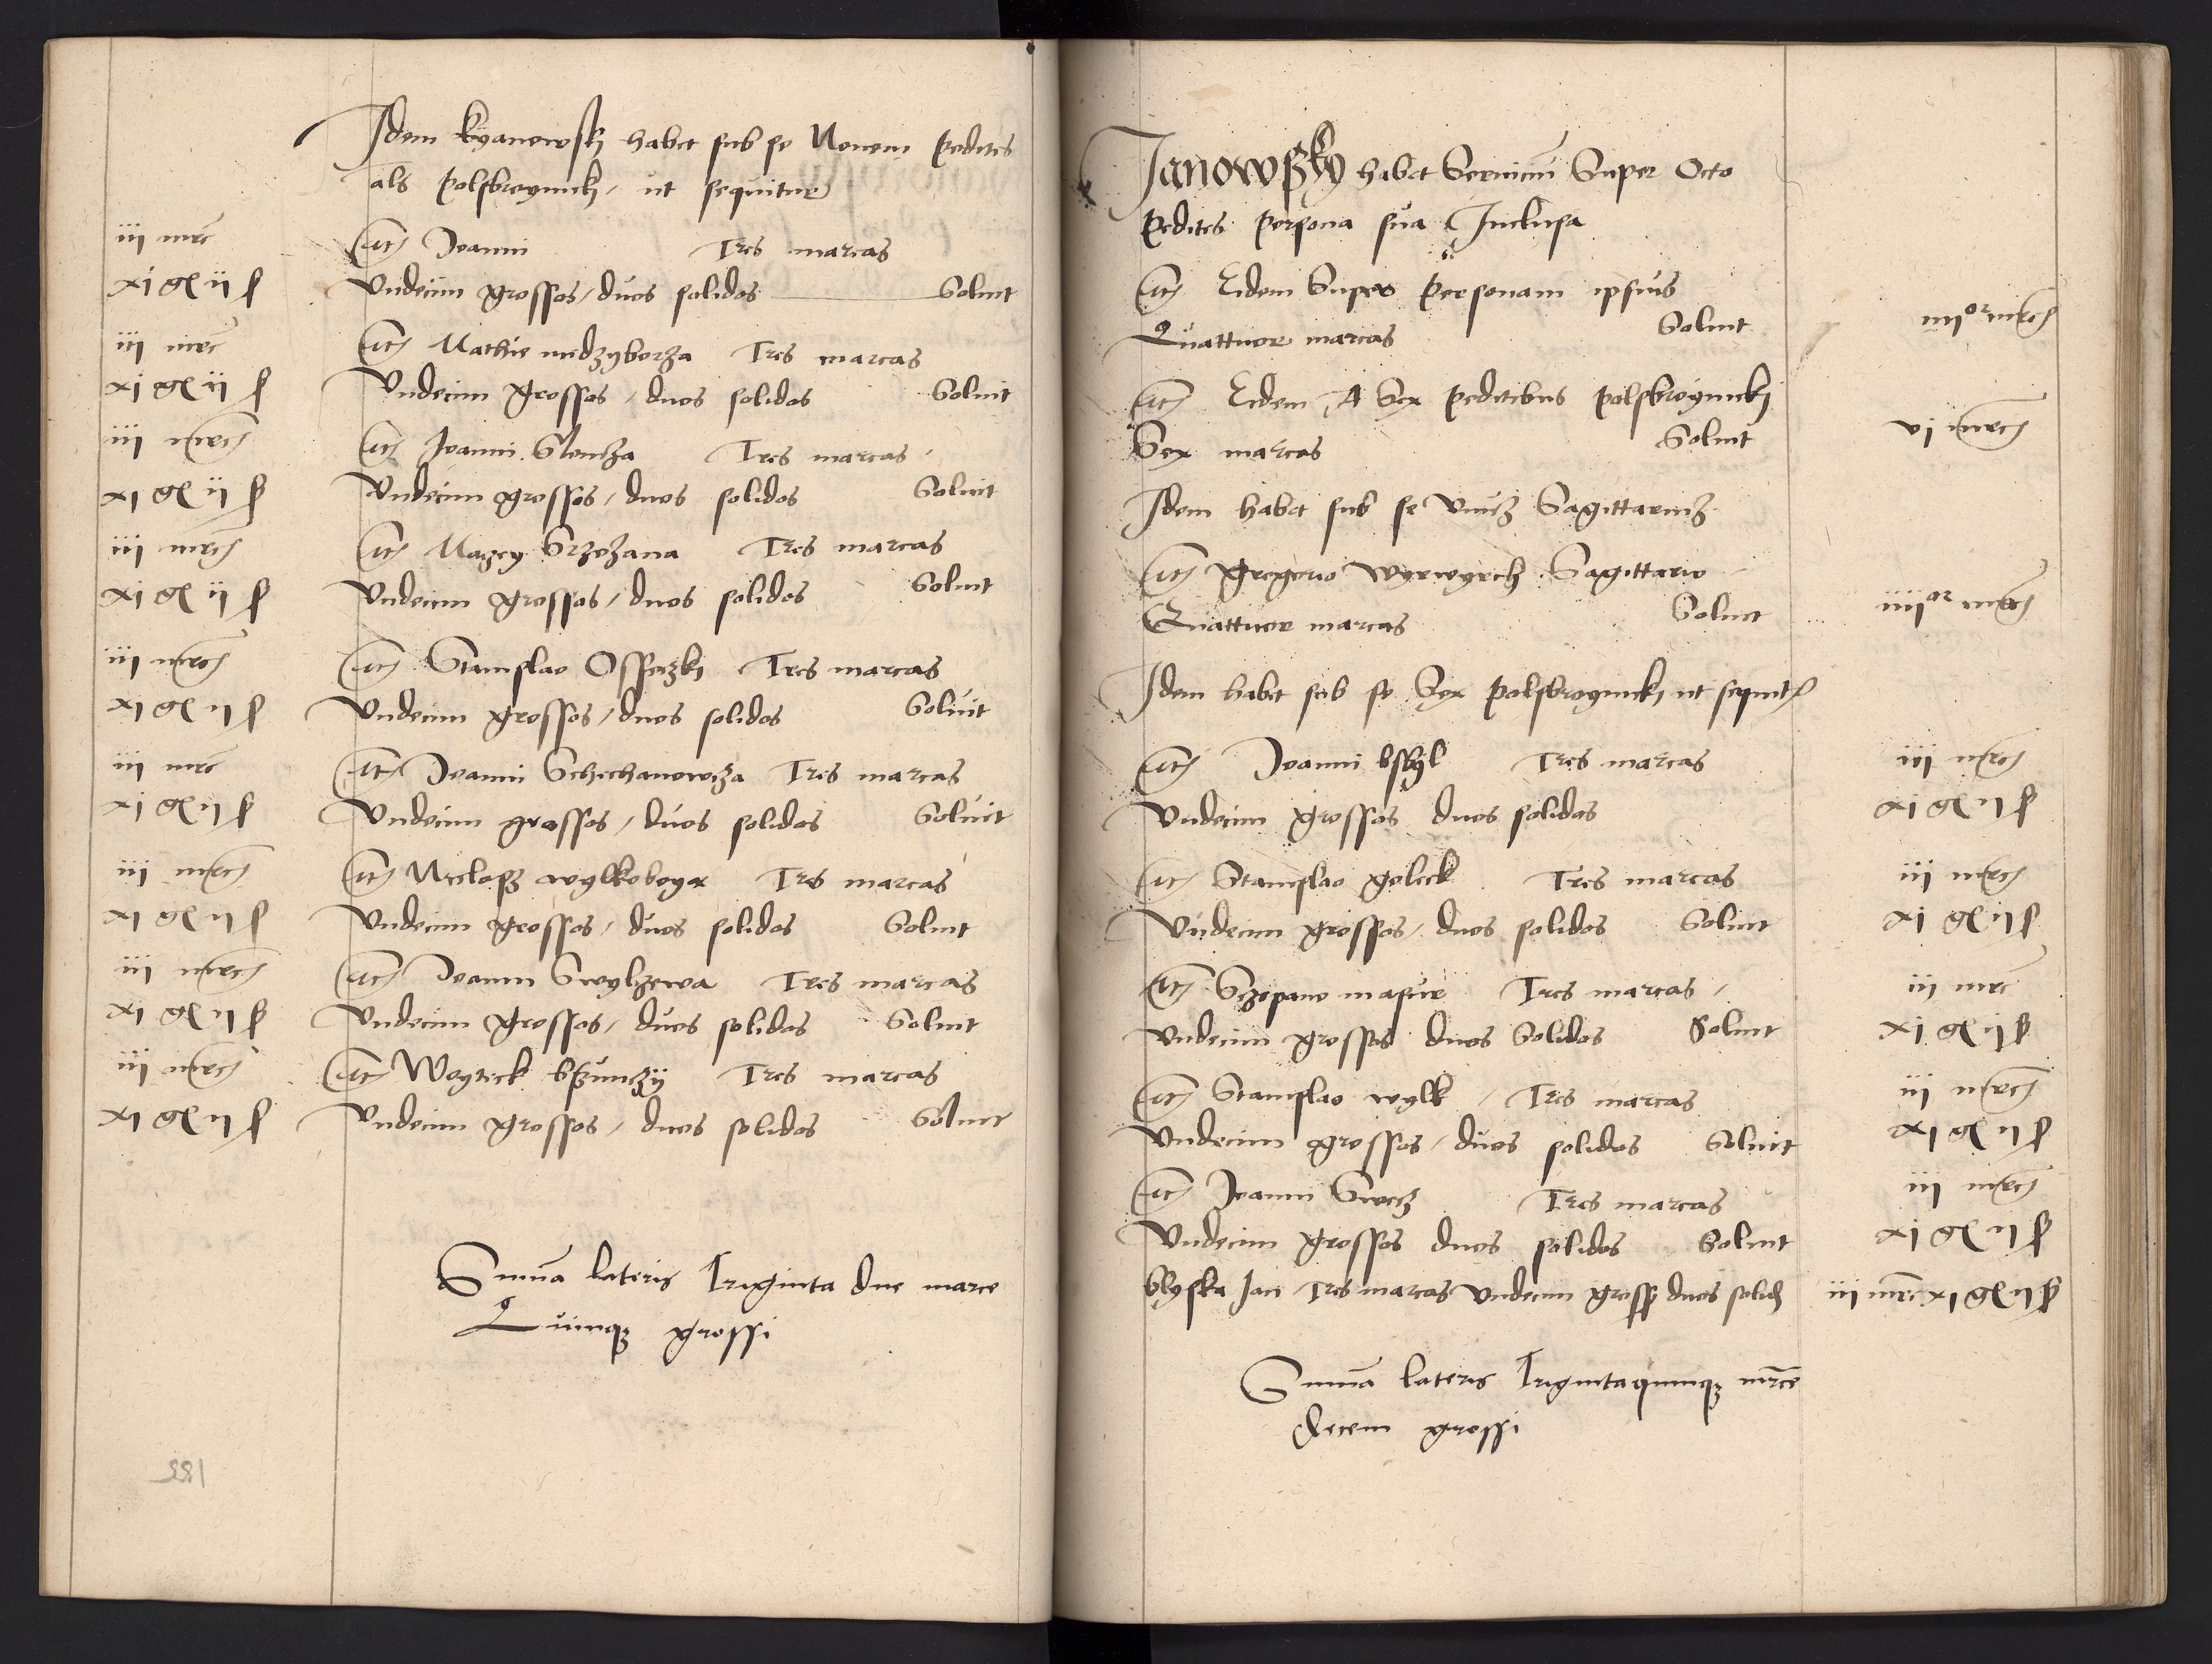 Idem kyanowskj habet sub se Nouem pedites
als polsbroynickj / ut sequitur
iij mrc It Joanni Tres marcas
xj gr ij s Vndecim grossos / duos solidos Soluit
iij mrc It Mathie medzyborza Tres marcas
xj gr ij s Vndecim grossos / duos solidos Soluit
iij mrc It Joanni Slomcza Tres marcas
xj gr ij s Vndecim grossos / duos solidos Soluit
iij mrc It Maczey Srzezana Tres marcas
xj gr ij s Vndecim grossos / duos solidos Soluit
iij mrc It Stanislao Osseczki Tres marcas
xj gr ij s Vndecim grossos / duos solidos Soluit
iij mrc It Joanni Schechanowcza Tres marcas
xj gr ij s Vndecim grossos / duos solidos Soluit
iij mrc It wylkoboya Tres marcas
xj gr ij s Vndecim grossos / duos solidos Soluit
iij mrc It Joanni Swylzewa Tres marcas
xj gr ij s Vndecim grossos / duos solidos Soluit
iij mrc It Woyteck Tres marcas
xj gr ij s Vndecim grossos / duos solidos Soluit
Summa lateris Triginta due marce
Quinqz grossi
Janowsky habet Seruicium Super Octo
pedites persona sua Inclusa
It Eidem Super personam ipsius
Quattuor marcas Soluit iiijor mrc
It Eidem A Sex peditibus polsbroynickj
Sex marcas Soluit vj mrc
Idem habet sub se vnucz Sagittariuz
It Gregorio wyrwycz Sagittario
Quattuor marcas Soluit iiijor mrc
Idem habet sub se Sex polsbroynickj ut sequitr
It Joanni Tres marcas iij mrc
Vndecim grossos duos solidos xj gr ij s
It Stanislao goleck Tres marcas iij mrc
Vndecim grossos / duos solidos Soluit xj gr ij s
It Sczepano masur Tres marcas / iij mrc
Vndecim grossos duos Solidos Soluit xj gr ij s
It Stanislao wylk / Tres marcas iij mrc
Vndecim grossos / duos solidos Soluit xj gr ij s
It Joanni Swecz Tres marcas iij mrc
Vndecim grossos duos solidos Soluit xj gr ij s
blyska Jan Tres marcas Vndecim gross duos solid iij mrc xj gr ij s
Summa lateris Trigintaquinqz mrce
decem grossi